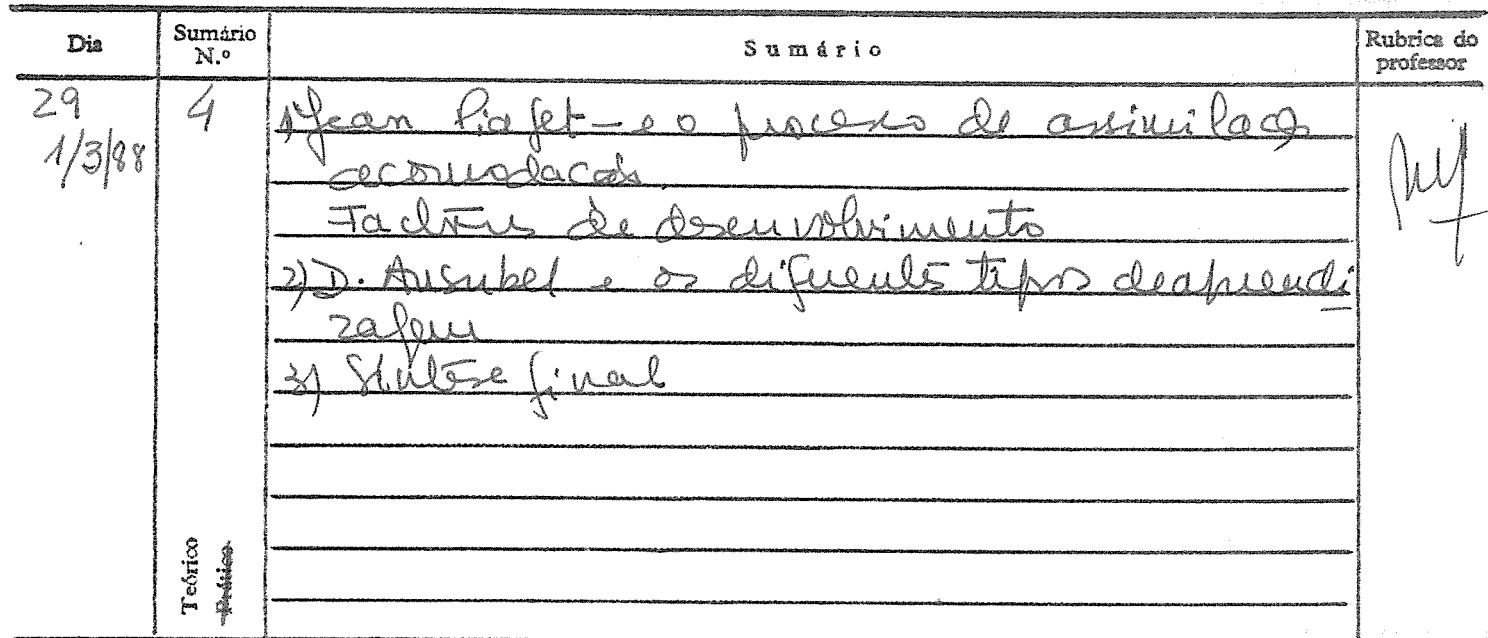 Dia
Sumário N.º
Sumário
Rubrica do professor
29
1/3/88
4
1) Jean Piaget - e o processo de assimilação
acomodação.
Factores de desenvolvimento
2) D. Ausubel e os diferentes tipos de aprendi
zagem
3) Síntese final
Teórico
Prático